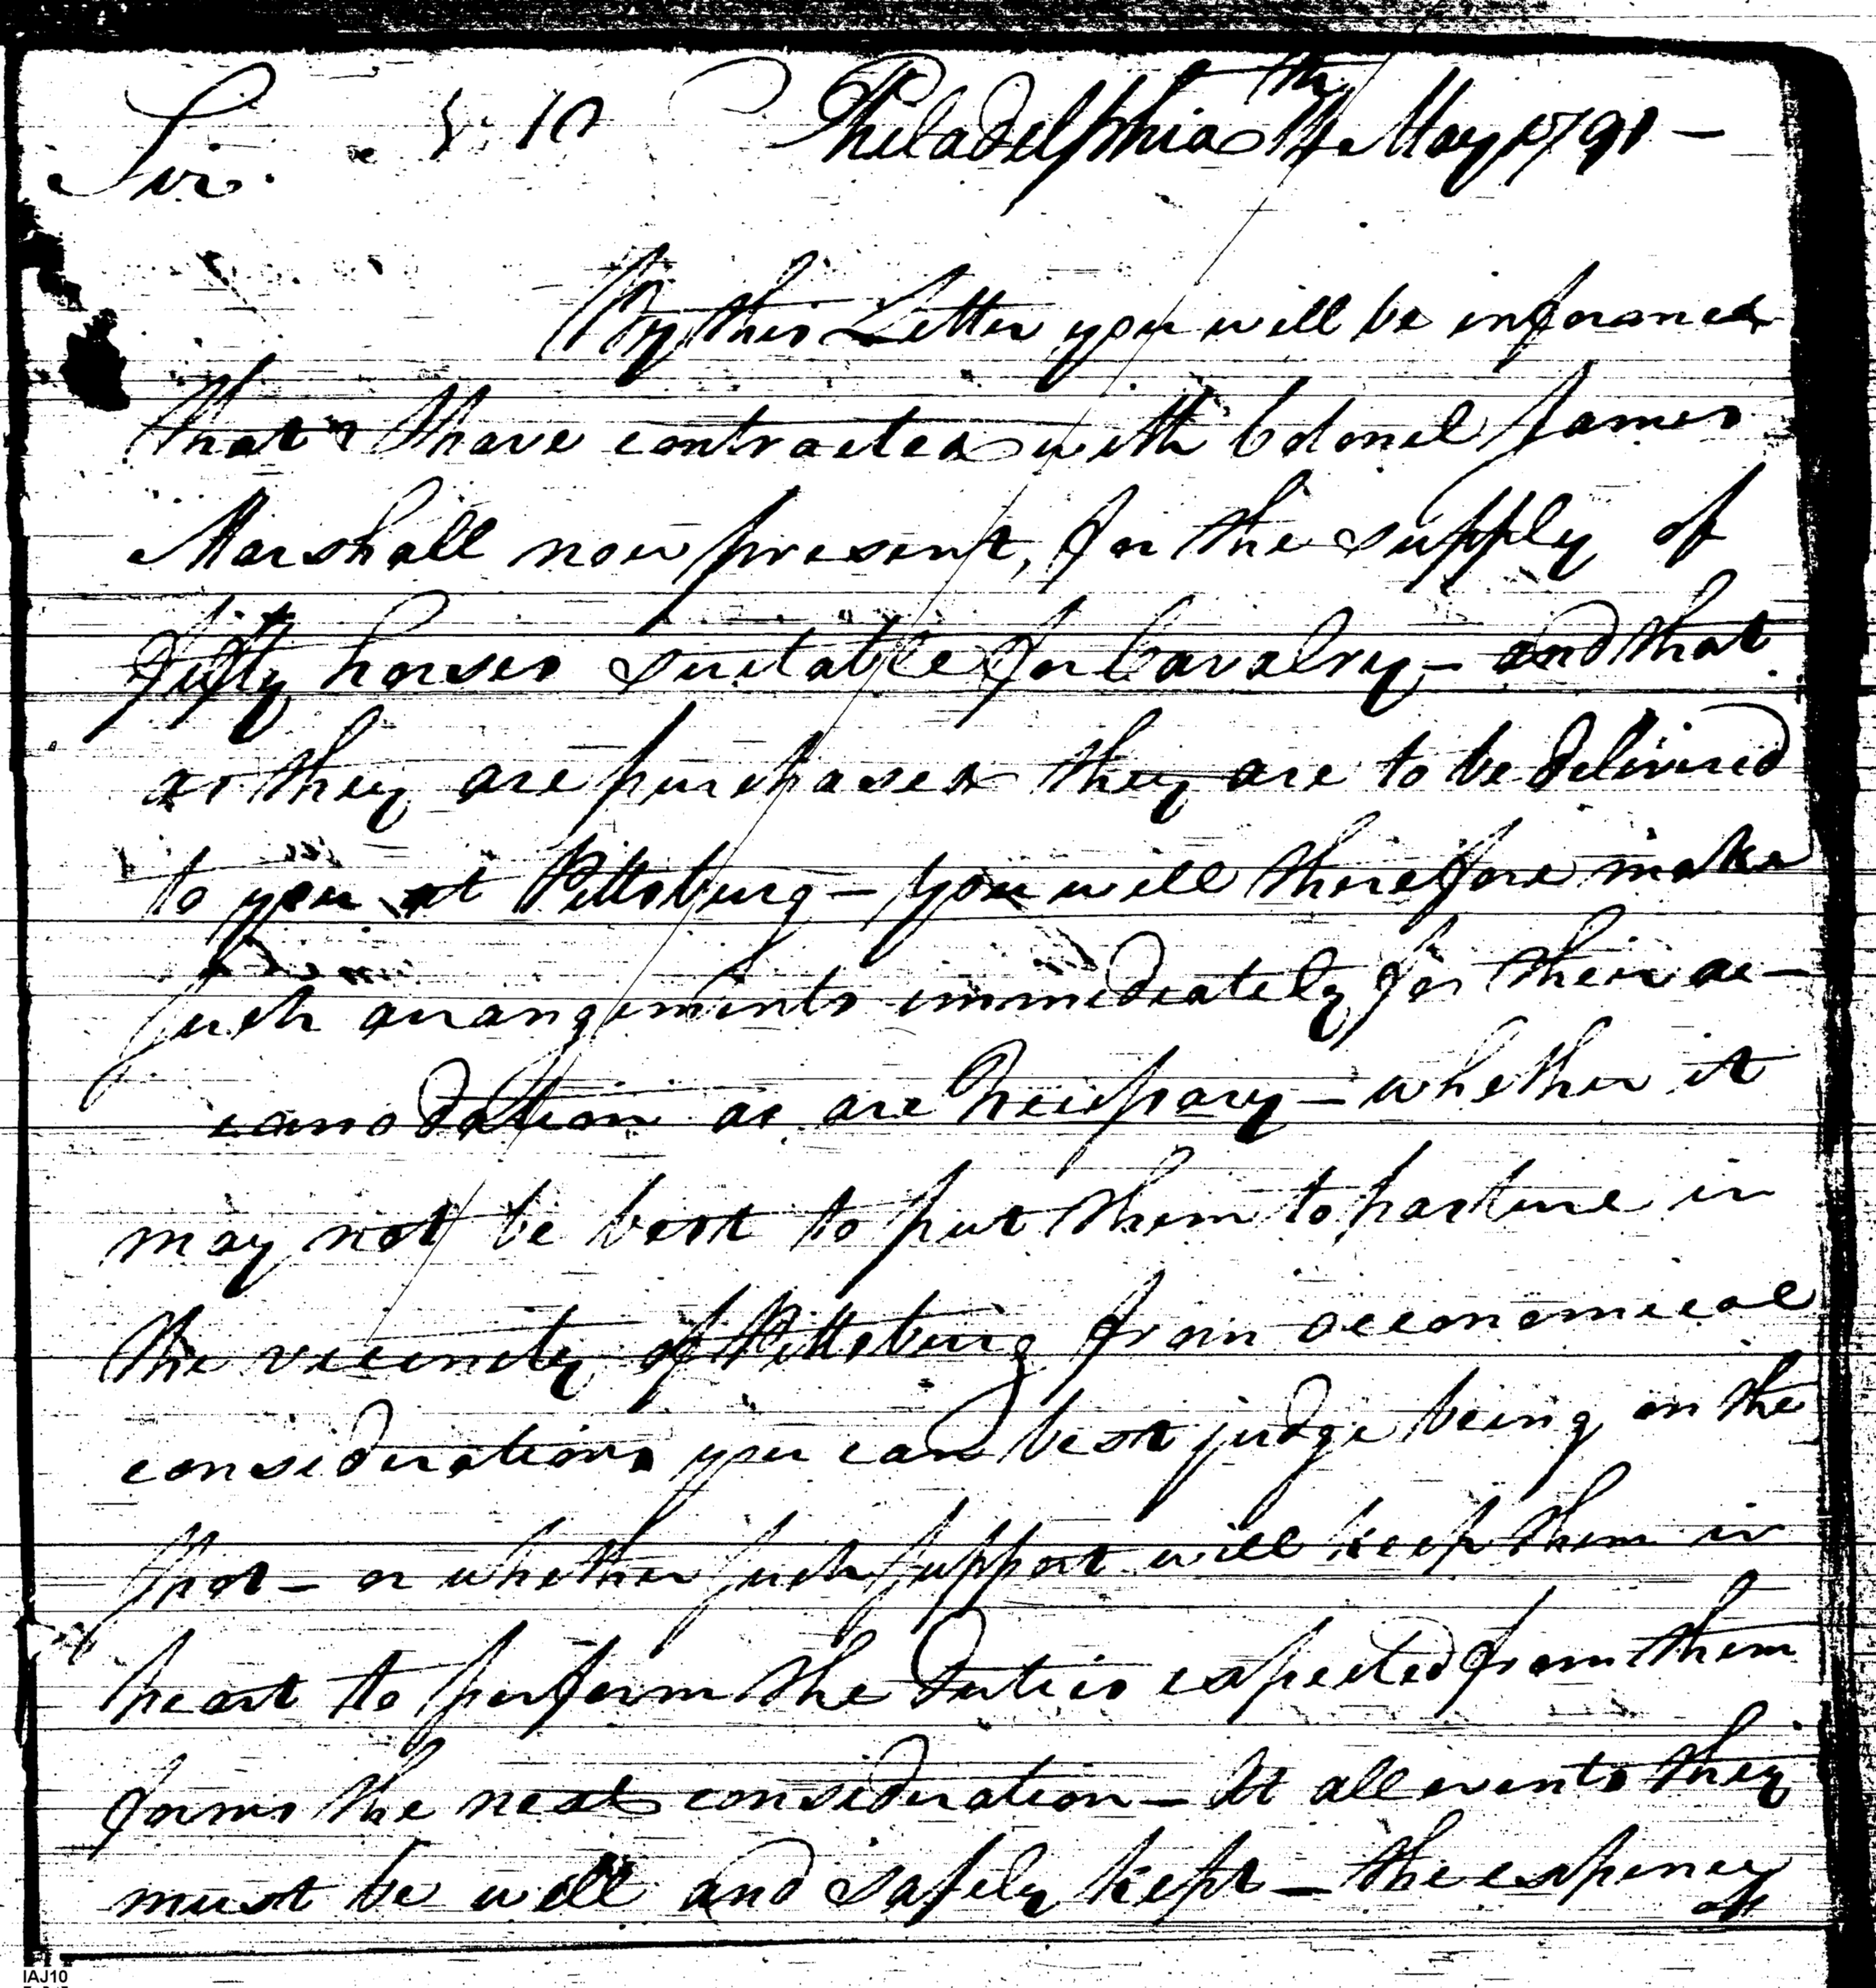 Sir. 10 Philadelphia 11th May 1791 —
By this Letter you will be informed
that I have contracted with Colonel James
Marshall now present, for the supply of
fifty horses suitable for Cavalry — and that
as they are purchased they are to be delivered
to you at Pittsburg — you will therefore make
such arrangements immediately for their ac-
comodation as are necessary — whether it
may not be best to put them to pasture in
the vicinity of Pittsburg from oeconomical
considerations you can best judge being on the
spot — or whether such support will keep them in
heart to perform the duties expected from them
forms the next consideration — At all events they
must be well and safely kept — the expences
of
IAJ10